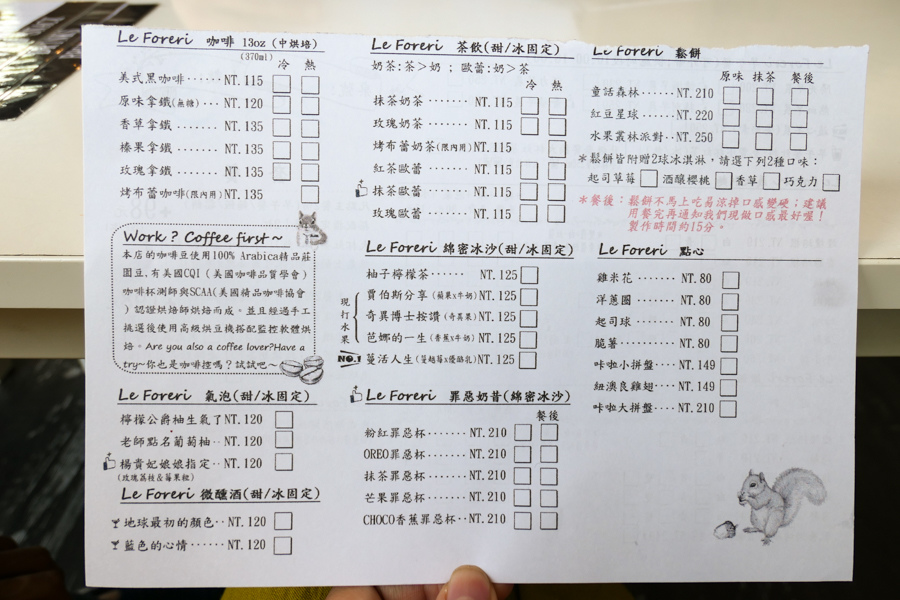 Le Foreri 咖啡 13oz (中烘培)
(370ml) 冷 熱
美式黑咖啡······NT.115
原味拿鐵(無糖)···NT.120
香草拿鐵·······NT.135
榛果拿鐵·······NT.135
玫瑰拿鐵·······NT.135
烤布蕾咖啡(限內用)NT.135
Work ? Coffee first~
本店的咖啡豆使用100% Arabica精品莊
園豆,有美國CQI (美國咖啡品質學會)
咖啡杯測師與SCAA(美國精品咖啡協會
)認證烘焙師烘焙而成。並且經過手工
挑選後使用高級烘豆機搭配監控軟體烘
焙。Are you also a coffee lover?Have a
try~你也是咖啡控嗎?試試吧~
Le Foreri 氣泡(甜/冰固定)
檸檬公爵柚生氣了NT.120
老師點名葡萄柚··NT.120
楊貴妃娘娘指定··NT.120
(玫瑰荔枝&莓果粒)
Le Foreri 微醺酒(甜/冰固定)
地球最初的顏色··NT.120
藍色的心情······NT.120
Le Foreri 茶飲(甜/冰固定)
奶茶:茶>奶 ; 歐蕾:奶>茶
冷 熱
抹茶奶茶·······NT.115
玫瑰奶茶·······NT.115
烤布蕾奶茶(限內用)NT.115
紅茶歐蕾·······NT.115
抹茶歐蕾·······NT.115
玫瑰歐蕾·······NT.115
Le Foreri 綿密冰沙(甜/冰固定)
柚子檸檬茶······NT.125
現打水果
賈伯斯分享(蘋果x牛奶)NT.125
奇異博士按讚(奇異果)NT.125
芭娜的一生(香蕉x牛奶)NT.125
NO.1 蔓活人生(蔓越莓x優酪乳)NT.125
Le Foreri 罪惡奶昔(綿密冰沙)
餐後
粉紅罪惡杯·······NT.210
OREO罪惡杯·······NT.210
抹茶罪惡杯·······NT.210
芒果罪惡杯·······NT.210
CHOCO香蕉罪惡杯··NT.210
Le Foreri 鬆餅
原味 抹茶 餐後
童話森林······NT.210
紅豆星球······NT.220
水果叢林派對··NT.250
*鬆餅皆附贈2球冰淇淋,請選下列2種口味:
起司草莓 酒釀櫻桃 香草 巧克力
*餐後:鬆餅不馬上吃易涼掉口感變硬;建議
用餐完再通知我們現做口感最好喔!
製作時間約15分。
Le Foreri 點心
雞米花·······NT.80
洋蔥圈·······NT.80
起司球·······NT.80
脆薯·········NT.80
咔啦小拼盤····NT.149
紐澳良雞翅···NT.149
咔啦大拼盤····NT.210